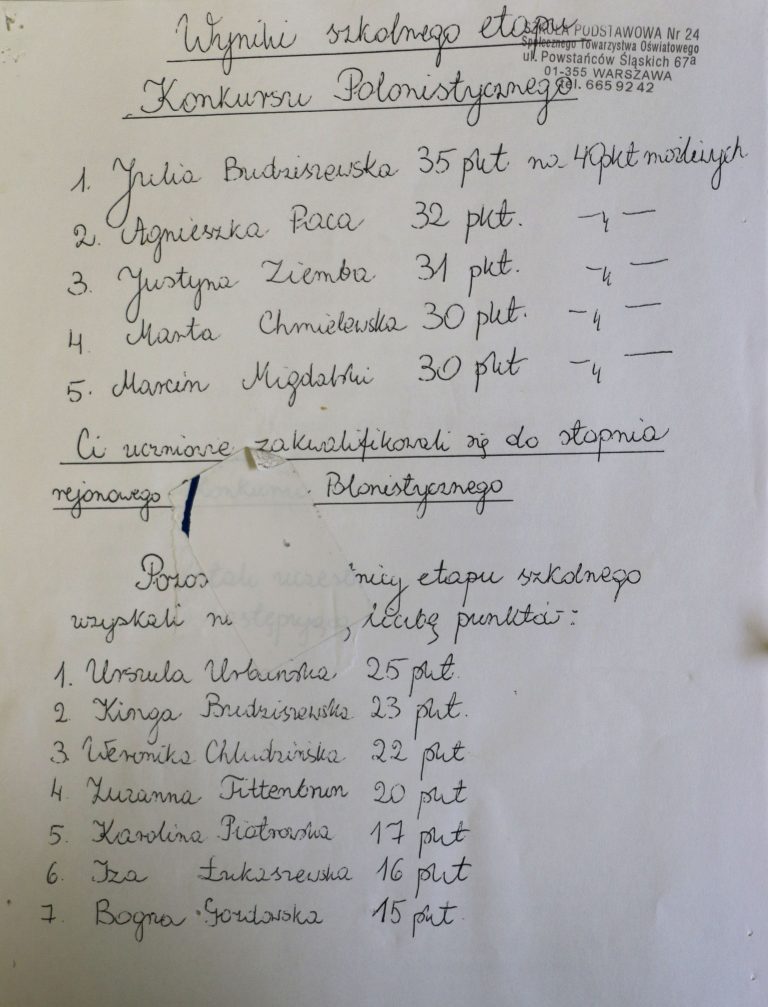 Wyniki szkolnego etapu
Konkursu Polonistycznego
SZKOŁA PODSTAWOWA Nr 24
Społecznego Towarzystwa Oświatowego
ul. Powstańców Śląskich 67a
01-355 WARSZAWA
tel. 665 92 42
1. Julia Budziszewska 35 pkt na 40pkt możliwych
2. Agnieszka Paca 32 pkt. -„-
3. Justyna Ziemba 31 pkt. -„-
4 Marta Chmielewska 30 pkt. -„-
5. Marcin Migdalski 30 pkt -„-
Ci uczniowie zakwalifikowali się do stopnia
rejonowego Polonistycznego
Pozos nicy etapu szkolnego
uzyskali n , liczbę punktów:
1. Urszula Urbańska 25 pkt
2 Kinga Budziszewska 23 pkt.
3 Weronika Chludzińska 22 pkt
4. Zuzanna Tittenbrun 20 pkt
5. Karolina Piotrowska 17 pkt
6. Iza Łukaszewska 16 pkt
7. Bogna 15 pkt